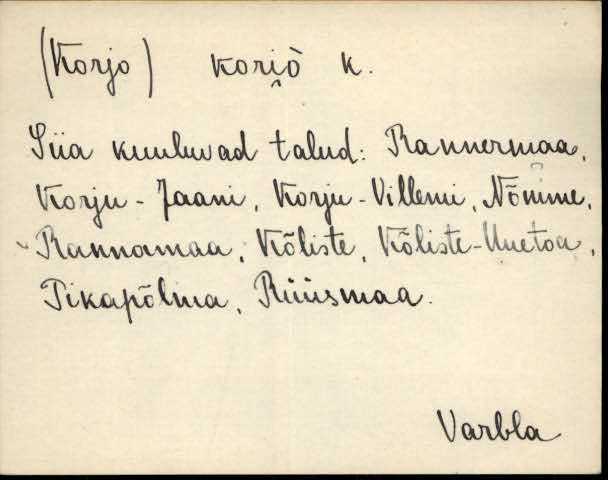 (Korjo) kori̯ò k.
Siia kuuluvad talud: Rannermaa,
Korju-Jaani, Korju-Villemi, Nõmme,
Rannamaa, Kõliste, Kõliste-Uuetoa,
Pikapõlma, Rüüsmaa.
Varbla